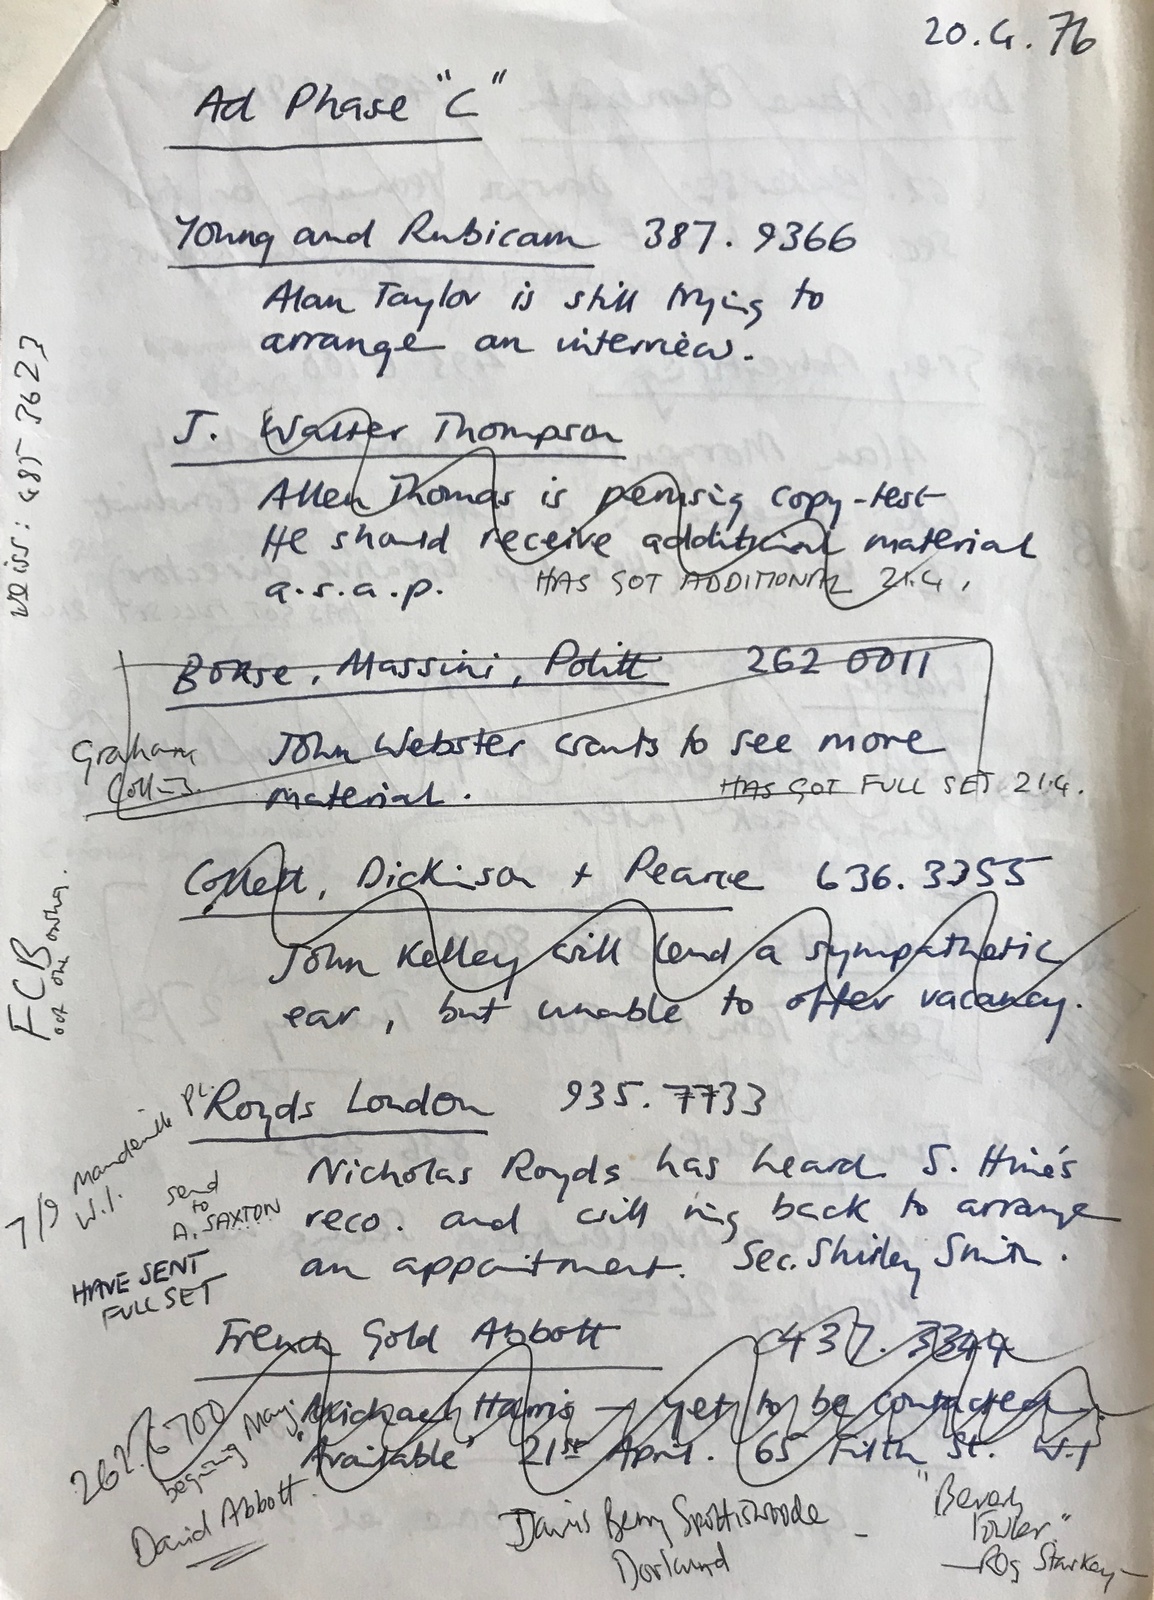 20.4.76
Ad Phase "C"
Young and Rubicam 387.9366
Alan Taylor is still trying to
arrange an interview.
J. Walter Thompson
Allen Thomas is perusing copy-test
He should receive additional material
a.s.a.p. HAS GOT ADDITIONAL 21.4.
Boase, Massini, Politt 262 0011
Graham
John Webster wants to see more
material. HAS GOT FULL SET 21.4.
Collett, Dickinson + Pearce 636.3355
John Kelley will lend a sympathetic
ear, but unable to offer vacancy.
Royds London 935.7733
Nicholas Royds has heard S. Hine's
reco. and will ring back to arrange
an appointment. Sec. Shirley Smith.
7/9 Mandeville Pl.
W.1.
send
to
A. SAXTON
HAVE SENT
FULL SET
French Gold Abbott 437.3344
Michael Harris — yet to be contacted.
"Available" 21st April. 65 Frith St. W.1
262.6700
begining May.
David Abbott.
Davis Berry Spottiswoode
Dorland
"Beverly
Fowler"
—Rog Starkey—
Weiss: 485 7623
FCB